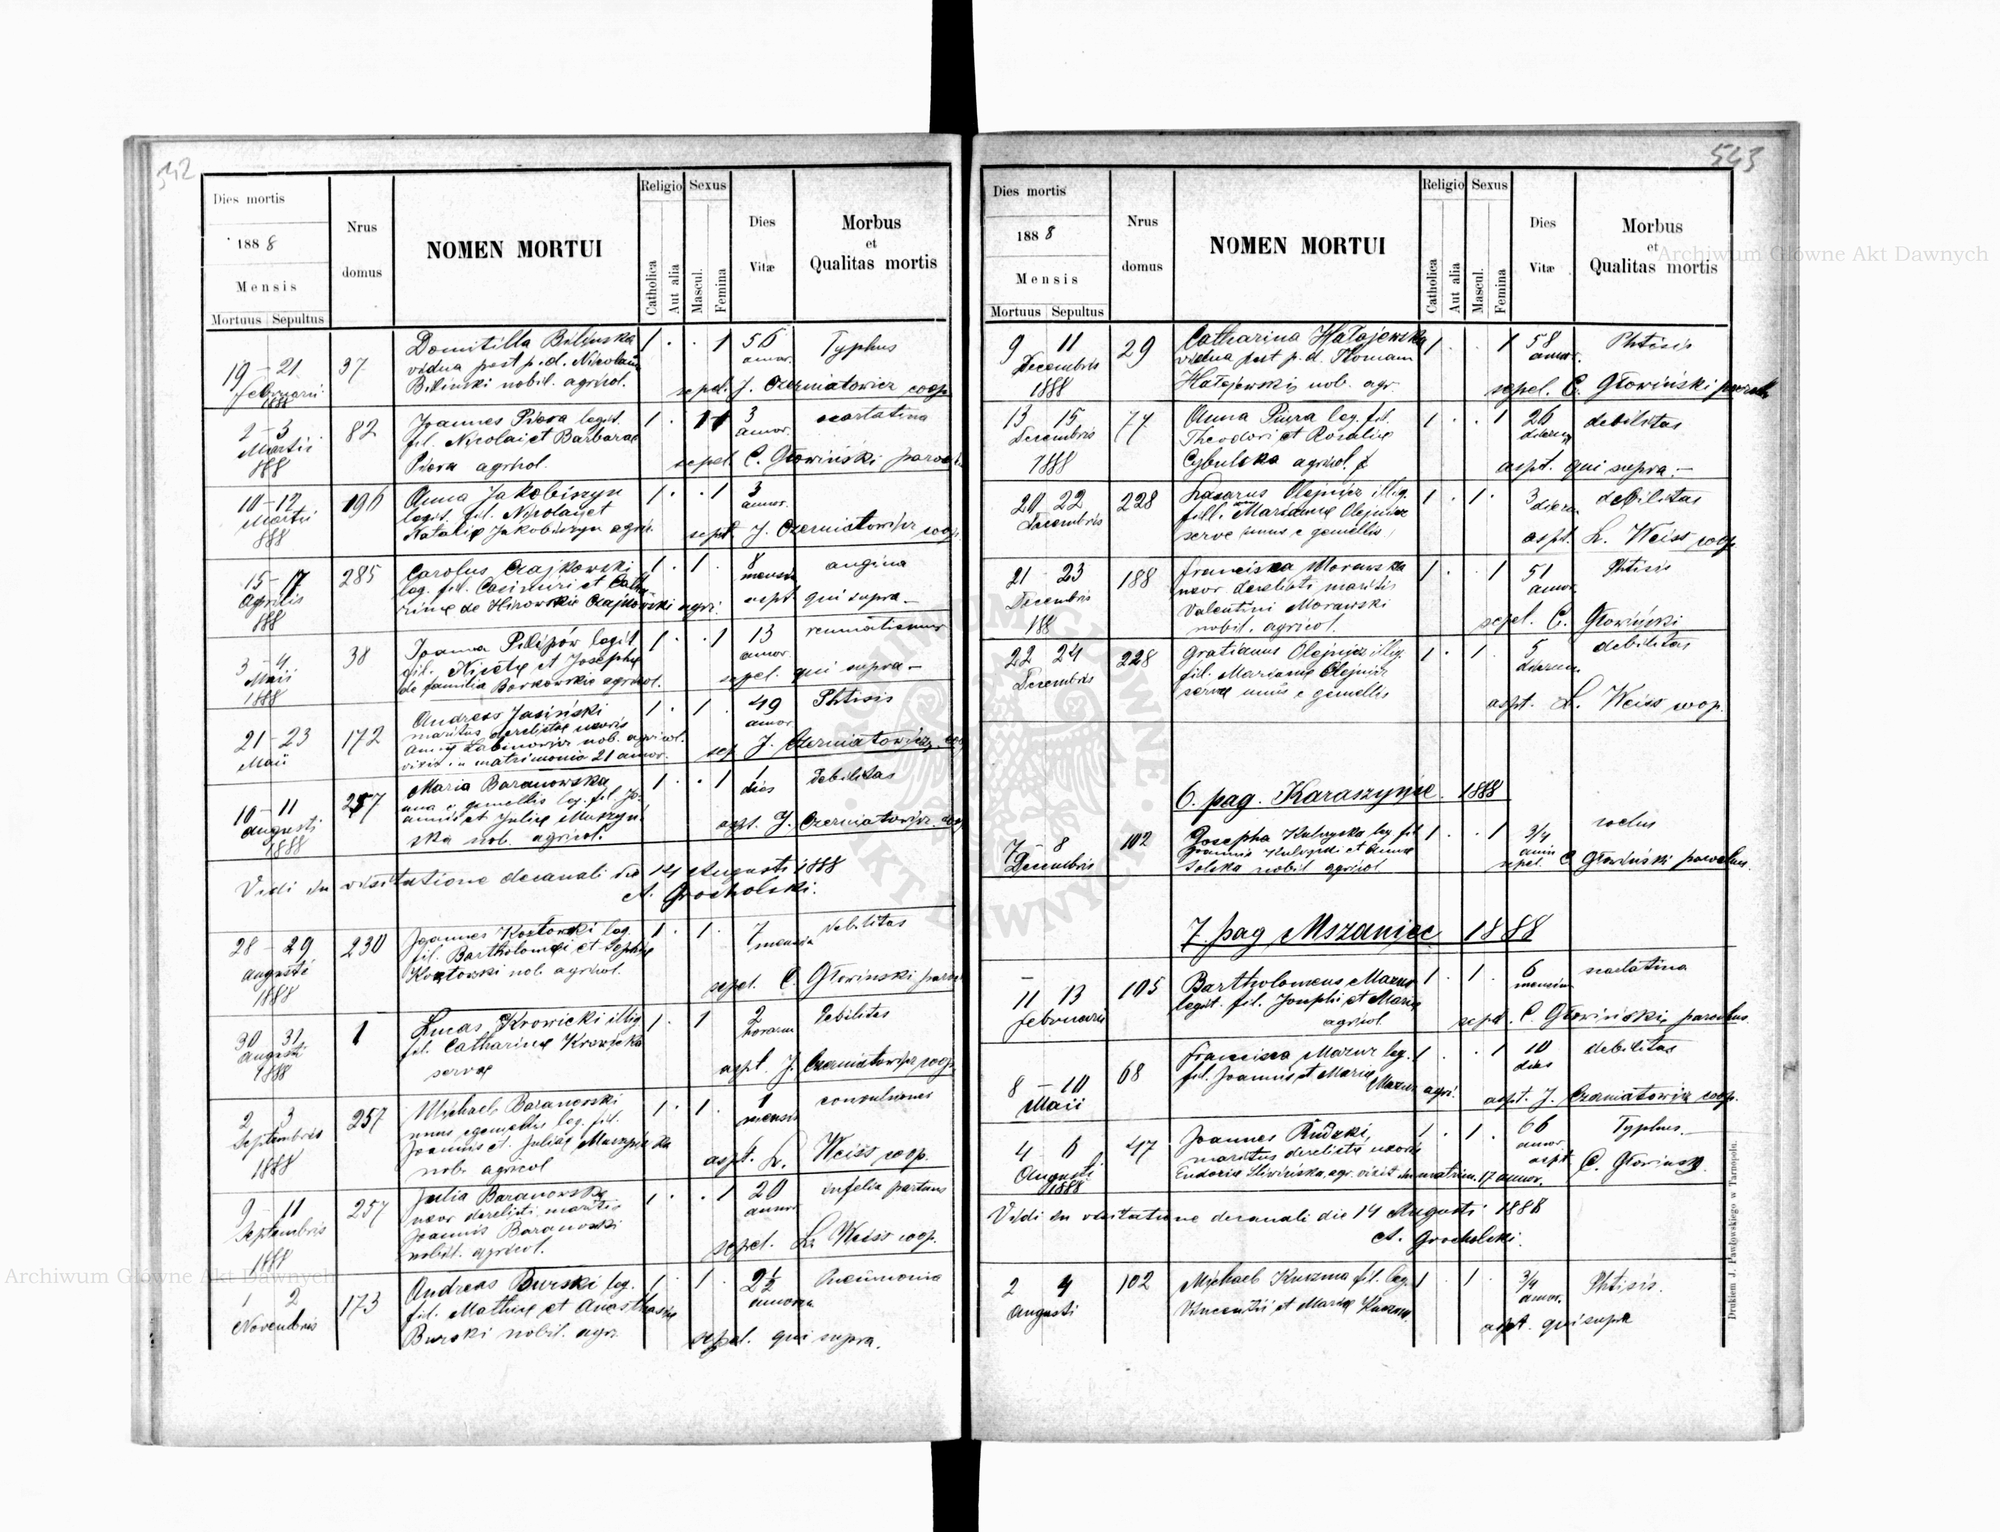 542
Dies mortis
1888
Mensis
Mortuus Sepultus
Nrus domus
NOMEN MORTUI
Religio
Catholica
Aut alia
Sexus
Mascul.
Femina
Dies Vitæ
Morbus
et
Qualitas mortis
19 - 21 Februarii 1888
37
Domitilla Bilińska
vidua post p. d. Nicolaum
Biliński nobil. agricol.
1 . . 1
56 annor.
Typhus
sepel. J. Czerniatowicz coop.
2 - 3 Martii 888
82
Joannes Piora legit.
fil. Nicolai et Barbarae
Piora agricol.
3 annor.
scarlatina
sepel. C. Głowiński paroch.
10 - 12 Martii 888
196
Anna Jakobiszyn
legit. fil. Nicolai et
Nataliæ Jakobiszyn agric.
1 . . 1
3 annor.
sepel. J. Czerniatowicz coop.
15 - 17 Aprilis 888
285
Carolus Czajkowski
leg. fil. Casimiri et Catha
rinæ de Czajkowski agri.
1 . 1
8 mensis
angina
aspt. qui supra -
3 - 4 Maii 1888
38
Joanna Pilipów legit.
fil. Nicetæ et Josephæ
de familia Borkowskie agricol.
1 . . 1
13 annor.
reumatismus
sepel. qui supra -
21 - 23 Maii
172
Andreas Jasiński
maritus derelictæ uxoris
Annæ nob. agricol.
vixit in matrimonio 21 annor.
1 . 1
49 annor
Phtisis
sep. J. Czerniatowicz coop
10 - 11 Augusti 1888
257
Maria Baranowska
una e gemellis leg. fil. Jo-
annis et Juliæ Muszyń
ska nob. agricol.
1 . . 1
1 dies
debilitas
aspt. J. Czerniatowicz coop
Vidi in visitatione decanali die 14 Augusti 1888
A. Grocholski.
28 - 29 Augusti 1888
230
Joannes Kozłowski leg.
fil. Bartholomæi et Sophiæ
Kozłowski nob. agricol.
1 . 1
7 mensis
debilitas
sepel. C. Głowinski paroch
30 31 Augusti 1888
1
Lucas Krowicki illig
fil. Catharinæ Krowicka
servæ
1 . 1
2 horarum
debilitas
aspt. J. Czerniatowicz coop.
2 3 Septembris 1888
257
Michael Baranowski
unus e gemellis leg. fil.
Joannis et Juliæ Muszyńska
nob. agricol
1 . 1
1 mensis
convulsiones
aspt. L. Weiss coop.
9 - 11 Septembris 1888
257
Julia Baranowska
uxor derelicti mariti
Joannis Baranowski
nobil. agricol.
1 . . 1
20 annor
infelix partus
sepel. L. Weiss coop.
1 2 Novembris
173
Andreas Burski leg.
fil. Mathiæ et Anasthasiæ
Burski nobil. agr.
1 . 1
2½ annorum
Pneumonia
sepel. qui supra.
543
Dies mortis
1888
Mensis
Mortuus Sepultus
Nrus domus
NOMEN MORTUI
Religio
Catholica
Aut alia
Sexus
Mascul.
Femina
Dies Vitæ
Morbus
et
Qualitas mortis
9 11 Decembris 1888
29
Catharina Hałajewska
vidua post p. d. Thomam
Hałajewski nob. agr.
1 . . 1
58 annor.
Phtisis
sepel. C. Głowiński paroch
13 15 Decembris 1888
77
Anna Piura leg. fil.
Theodori et Rosaliæ
Cybulska agricol.
1 . . 1
26 dierum
debilitas
aspt. qui supra. -
20 22 Decembris
228
Lazarus Olejnicz illig.
fill. Mariannæ Olejnicz
servæ unus e gemellis
1 . 1 .
3 dierum
debilitas
aspt. L. Weiss coop.
21 23 Decembris 188
188
Francisca Morawska
uxor derelicti mariti
Valentini Morawski
nobil. agricol.
1 . . 1
51 annor.
Phtisis
sepel. C. Głowiński
22 24 Decembris
228
Gratianus Olejnicz illig.
fil. Mariannæ Olejnicz
servæ unus e gemellis
1 . 1
5 dierum
debilitas
aspt. L. Weiss coop.
6. pag. Karaszyńce. 1888
7 - 8 Decembris
102
Josepha leg fil
Joannis et Annæ
Solska nobil agricol
1 . . 1
3/4 anni
sepel. C. Głowiński parochus.
7. pag Mszaniec 1888
11 13 Februarii
105
Bartholomeus Mazur
legit. fil. Josephi et Mariæ
agricol.
1 . 1 .
6 mensium
scarlatina
sepel. C. Głowiński parochus.
8 - 10 Maii
68
Francisca Mazur leg.
fil. Joannis et Mariæ
Mazur agri.
1 . . 1
10 dies
debilitas
aspt. J. Czerniatowicz coop.
4 - 6 Augusti 1888
47
Joannes Rudzki,
maritus derelictæ uxoris
Eudoxiæ Śliwińska, agr. vixit in matrim. 17 annor.
1 . 1 .
66 annor
Typhus.
aspt C. Głowinski.
Vidi in visitatione decanali die 14 Augusti 1888
A. Grocholski.
2 4 Augusti
102
Michael Kuczma fil. leg.
Vincentii et Mariæ Kuczma
1 . 1 .
3/4 annor.
Phtisis.
aspt. qui supra
Drukiem J. Pawłowskiego w Tarnopolu.
Archiwum Główne Akt Dawnych
Archiwum Główne Akt Dawnych
ARCHIWUM GŁÓWNE
AKT DAWNYCH